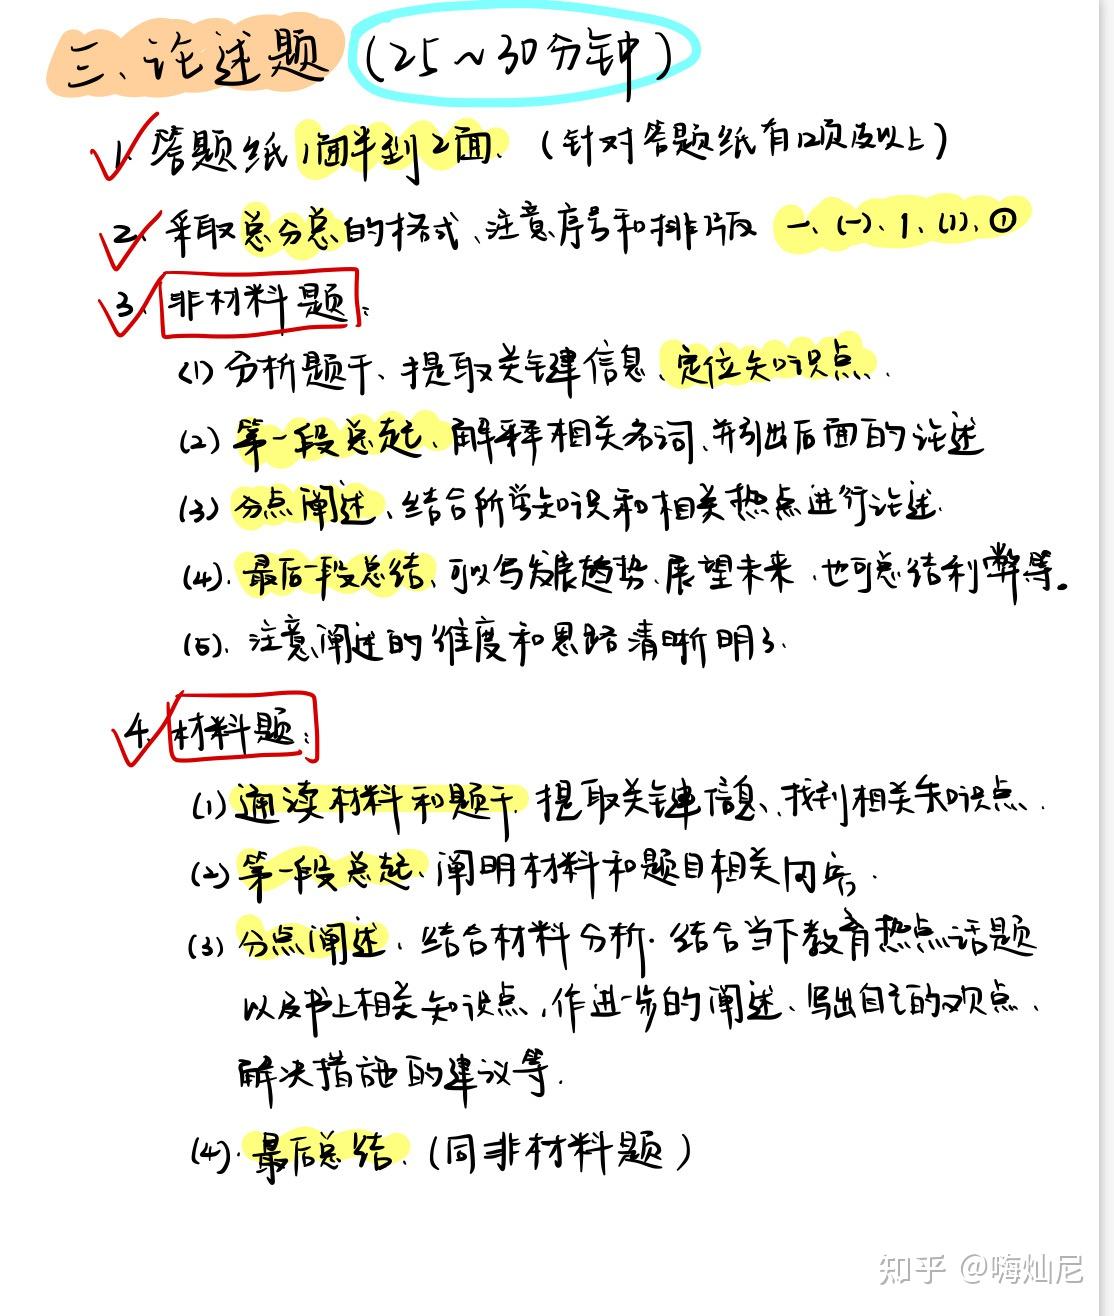 三、论述题 (25~30分钟)
1. 答题纸1面半到2面. (针对答题纸有12页及以上)
2. 采取总分总的格式、注意序号和排版 一、(一)、1、(1)、①
3. 非材料题:
(1) 分析题干、提取关键信息、定位知识点.
(2) 第一段总起、解释相关名词、并引出后面的论述
(3) 分点阐述、结合所学知识和相关热点进行论述.
(4). 最后一段总结、可以写发展趋势、展望未来、也可总结利弊等。
(5). 注意阐述的维度和思路清晰明了.
4. 材料题:
(1) 通读材料和题干. 提取关键信息、找到相关知识点.
(2) 第一段总起、阐明材料和题目相关内容.
(3) 分点阐述、结合材料分析. 结合当下教育热点话题
以及书上相关知识点,作进一步的阐述、写出自己的观点、
解决措施的建议等.
(4). 最后总结. (同非材料题)
知乎 @嗨灿尼